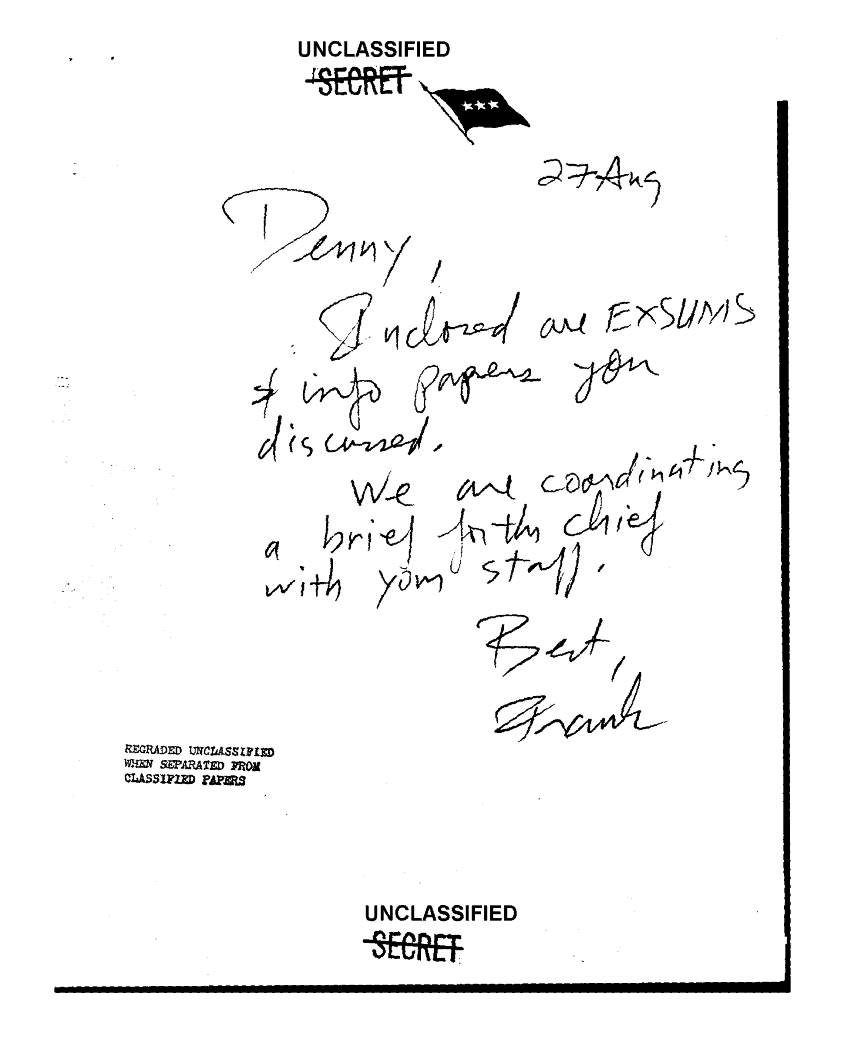 UNCLASSIFIED
SECRET
27 Aug
Denny,
Inclosed are EXSUMS
& info papers you
discussed.
We are coordinating
a brief for the chief
with your staff.
Best,
Frank
REGRADED UNCLASSIFIED
WHEN SEPARATED FROM
CLASSIFIED PAPERS
UNCLASSIFIED
SECRET